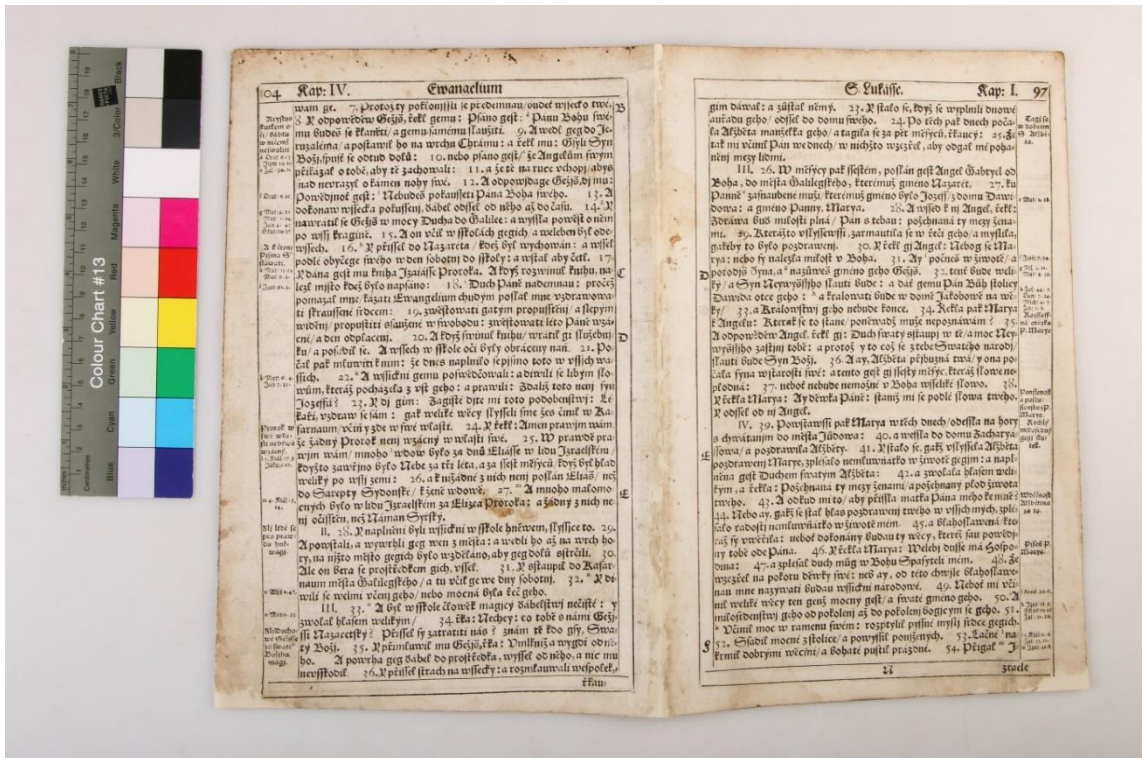 Colour Chart #13
Blue
Cyan
Green
Yellow
Red
Magenta
White
3/Color
Black
104 Kap: IV. Ewangelium
wam ge. 7. Protož ty pokloníssli se předemnau/ budeť wssecko twé.
8. Y odpowěděw Gežjš, řekl gemu: Psáno gest: Pánu Bohu swé-
mu budeš se klaněti/ a gemu samému slaužiti. 9. A wedl geg do Je-
ruzaléma/ a postawil ho na wrchu Chrámu: a řekl mu: Gsyli Syn
Božj, spusť se odtud dolů: 10. nebo psáno gest/ že Angelům swým
přikázal o tobě, aby tě zachowali: 11. a že tě na ruce wchopj/ abys
nad neurazyl o kámen nohy swé. 12. A odpowjdage Gežjš, dj mu:
Powědjno gest: Nebudeš pokausseti Pána Boha twého. 13. A
dokonaw wssecka pokussenj, ďábel odssel od něho až do času. 14. Y
nawrátil se Gežjš w mocy Ducha do Galilee: a wyssla powěst o něm
po wssj kragině. 15. A on včil w sskolách gegich/ a weleben byl ode-
wssech. 16. Y přissel do Nazareta/ kdež byl wychowán: a wssel
podlé obyčege swého w den sobotnj do sskoly: a wstal aby četl. 17.
Y dána gest mu kniha Izaiásse Proroka. A když rozwinul knihu, na-
lezl mjsto kdež bylo napsáno: 18. Duch Páně nademnau: pročež
pomazal mne/ kázati Ewangelium chudým poslal mne/ vzdrawowa-
ti skraussené srdcem: 19. zwěstowati gatým propusstěnj/ a slepým
widěnj/ propustiti saužené w swobodu: zwěstowati léto Páně wzá-
cné/ a den odplacenj. 20. A když swinul knihu/ wrátil gi služebnj-
ku/ a posadil se. A wssech w sskole oči byly obráceny naň. 21. Po-
čal pak mluwiti k nim: že dnes naplnilo se pjsmo toto w vssjch wa-
ssich. 22. A wssickni gemu poswědčowali: a diwili se libým slo-
wům, kteráž pocházela z vst geho: a prawili: Zdaliž toto nenj syn
Jozeffů? 23. Y dj gim: Zagisté djte mi toto podobenstwj: Lé-
kaři, vzdraw se sám: gak weliké wěcy slysseli sme žes činil w Ka-
farnaum/ včiň y zde w swé wlasti. 24. Y řekl: Amen prawjm wám,
že žádný Prorok nenj wzácný w wlasti swé. 25. W prawdě pra-
wjm wám/ mnoho wdow bylo za dnů Eliásse w lidu Izraelském/
kdyžto zawřjno bylo Nebe za tři léta, a za ssest měsýců/ když byl hlad
weliký po wssj zemi: 26. a k nižádné z nich nenj poslán Eliáš/ než
do Sarepty Sydonské/ k ženě wdowě. 27. A mnoho malomo-
cných bylo w lidu Izraelském za Elizea Proroka: a žádný z nich ne-
nj očisstěn, než Náman Syrský.
II. 28. Y naplněni byli wssickni w sskole hněwem, slyssjce to. 29.
A powstali, a wywrhli geg wen z města: a wedli ho až na wrch ho-
ry, na njžto město gegich bylo wzděláno, aby geg dolů sstrčili. 30.
Ale on bera se prostředkem gich, vssel. 31. Y sstaupil do Kafar-
naum města Galilegského/ a tu včil ge we dny sobotnj. 32. Y di-
wili se welmi včenj geho/ nebo mocná byla řeč geho.
III. 33. A byl w sskole člowěk magjcý ďábelstwj nečisté: y
zwolal hlasem welikým/ 34. řka: Nechey: co tobě s námi Gežj-
ssi Nazaretský? Přissel sy zatratiti nás? znám tě kdo gsy, Swa-
tý Božj. 35. Y přimluwil mu Gežjš, řka: Vmlkniž a wygdi od ně-
ho. A powrha geg ďábel do prostředka, wyssel od něho, a nic mu
nevsskodil. 36. Y přissel strach na wssecky: a rozmlauwali wespolek,
řkau-
B
C
D
E
S. Lukásse. Kap: I. 97
gim dáwal: a zůstal němý. 23. Y stalo se, když se wyplnili dnowé
auřadu geho/ odssel do domu swého. 24. Po těch pak dnech poča-
la Alžběta manželka geho/ a tagila se za pět měsýců, řkaucy: 25. Že
tak mi včinil Pán we dnech/ w nichžto wzezřel, aby odgal mé poha-
něnj mezy lidmi.
III. 26. W měsýcy pak ssestém, poslán gest Angel Gabryel od
Boha, do města Galilegského, kterémuž gméno Nazarét. 27. ku
Panně zasnaubené muži/ kterémuž gméno bylo Jozeff/ z domu Dawi-
dowa: a gméno Panny, Marya. 28. A wssed k nj Angel, řekl:
Zdráwa buď milosti plná/ Pán s tebau: požehnaná ty mezy žena-
mi. 29. Kterážto vslyssewssi, zarmautila se w řeči geho/ a myslila,
gakéby to bylo pozdrawenj. 30. Y řekl gj Angel: Nebog se Ma-
rya: nebo sy nalezla milost v Boha. 31. Ay počneš w žiwotě/ a
porodjš Syna, a nazůweš gméno geho Gežjš. 32. tenť bude weli-
ký/ a Syn Neywyššjho slauti bude: a dáť gemu Pán Bůh stolicy
Dawida otce geho: a kralowati bude w domě Jákobowě na wě-
ky/ 33. a Králowstwj geho nebude konce. 34. Řekla pak Marya
k Angelu: Kterak se to stane/ poněwadž muže nepoznáwám? 35.
A odpowěděw Angel, řekl gj: Duch swatý sstaupj w tě/ a moc Ney-
wyššjho zastjnj tobě: a protož y to což se z tebe Swatého narodj/
slauti bude Syn Božj. 36. A ay, Alžběta přjbuzná twá/ y ona po-
čala syna w starosti swé: a tento gest gj ssestý měsýc, kteráž slowe ne-
plodná: 37. neboť nebude nemožné v Boha wsseliké slowo. 38.
Y řekla Marya: Ay děwka Páně: staniž mi se podlé slowa twého.
Y odssel od nj Angel.
IV. 39. Powstawssi pak Marya w těch dnech/ odessla na hory
s chwátanjm do města Júdowa: 40. a wessla do domu Zacharya-
ssowa/ a pozdrawila Alžběty. 41. Y stalo se, gakž vslyssela Alžběta
pozdrawenj Marye, zplésalo nemluwňátko w žiwotě gegjm: a napl-
něna gest Duchem swatým Alžběta: 42. a zwolala hlasem weli-
kým, a řekla: Požehnaná ty mezy ženami/ a požehnaný plod žiwota
twého. 43. A odkud mi to/ aby přissla matka Pána mého ke mně?
44. Nebo ay, gakž se stal hlas pozdrawenj twého w vssjch mých, zplé-
salo radostj nemluwňátko w žiwotě mém. 45. a blahoslawená kte-
ráž sy vwěřila: neboť dokonány budau ty wěcy, kteréž sau powědj-
ny tobě ode Pána. 46. Y řekla Marya: Welebj dusse má Hospo-
dina: 47. a zplésal duch můg w Bohu Spasyteli mém. 48. Že
wzezřel na pokoru děwky swé: neb ay, od této chwjle blahoslawe-
nau mne nazýwati budau wssickni národowé. 49. Neboť mi včí-
nil weliké wěcy ten genž mocný gest/ a swaté gméno geho. 50. A
milosrdenstwj geho od pokolenj až do pokolenj bogjcým se geho. 51.
Včinil moc w ramenu swém: rozptýlil pyssné myslj srdce gegich.
52. Ssadil mocné z stolice/ a powýssil ponjžených. 53. Lačné na-
krmil dobrými wěcmi/ a bohaté pustil prázdné. 54. Přigal J-
N
zraele
D
E
F